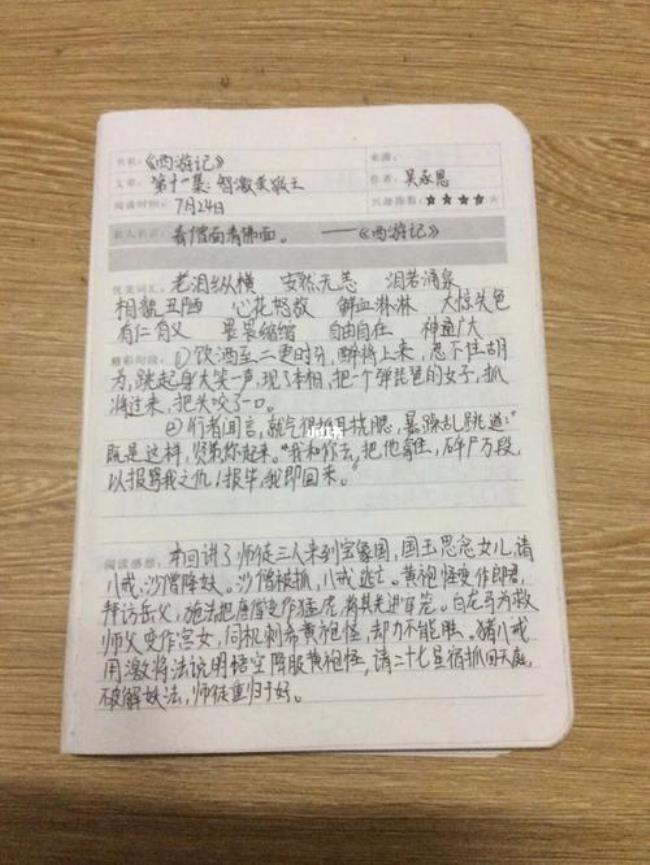 书名：《西游记》 来源：
文章：第十一集：智激美猴王 作者：吴承恩
阅读时间：7月24日 兴趣指数：★★★★★
名人名言：看僧面看佛面。 ——《西游记》
优美词汇：老泪纵横 安然无恙 泪若涌泉
相貌丑陋 心花怒放 鲜血淋淋 大惊失色
有仁有义 畏畏缩缩 自由自在 神通广大
精彩句段：①饮酒至二更时分，醉将上来，忍不住胡
为，跳起身大笑一声，现了本相，把一个弹琵琶的女子，抓
将过来，把头咬了一口。
②行者闻言，就气得抓耳挠腮，暴躁乱跳道：“
既是这样，贤弟你起来。“我和你去，把他拿住，碎尸万段，
以报骂我之仇！报毕，我即回来。”
小红书
阅读感想：本回讲了师徒三人来到宝象国，国王思念女儿，请
八戒、沙僧降妖。沙僧被抓，八戒逃亡。黄袍怪变作郎君，
拜访岳父，施法把唐僧变作猛虎，将其关进牢笼。白龙马为救
师父变作宫女，伺机刺杀黄袍怪，却力不能胜。猪八戒
用激将法说明悟空降服黄袍怪，请二十七星宿抓回天庭，
破解妖法，师徒重归于好。